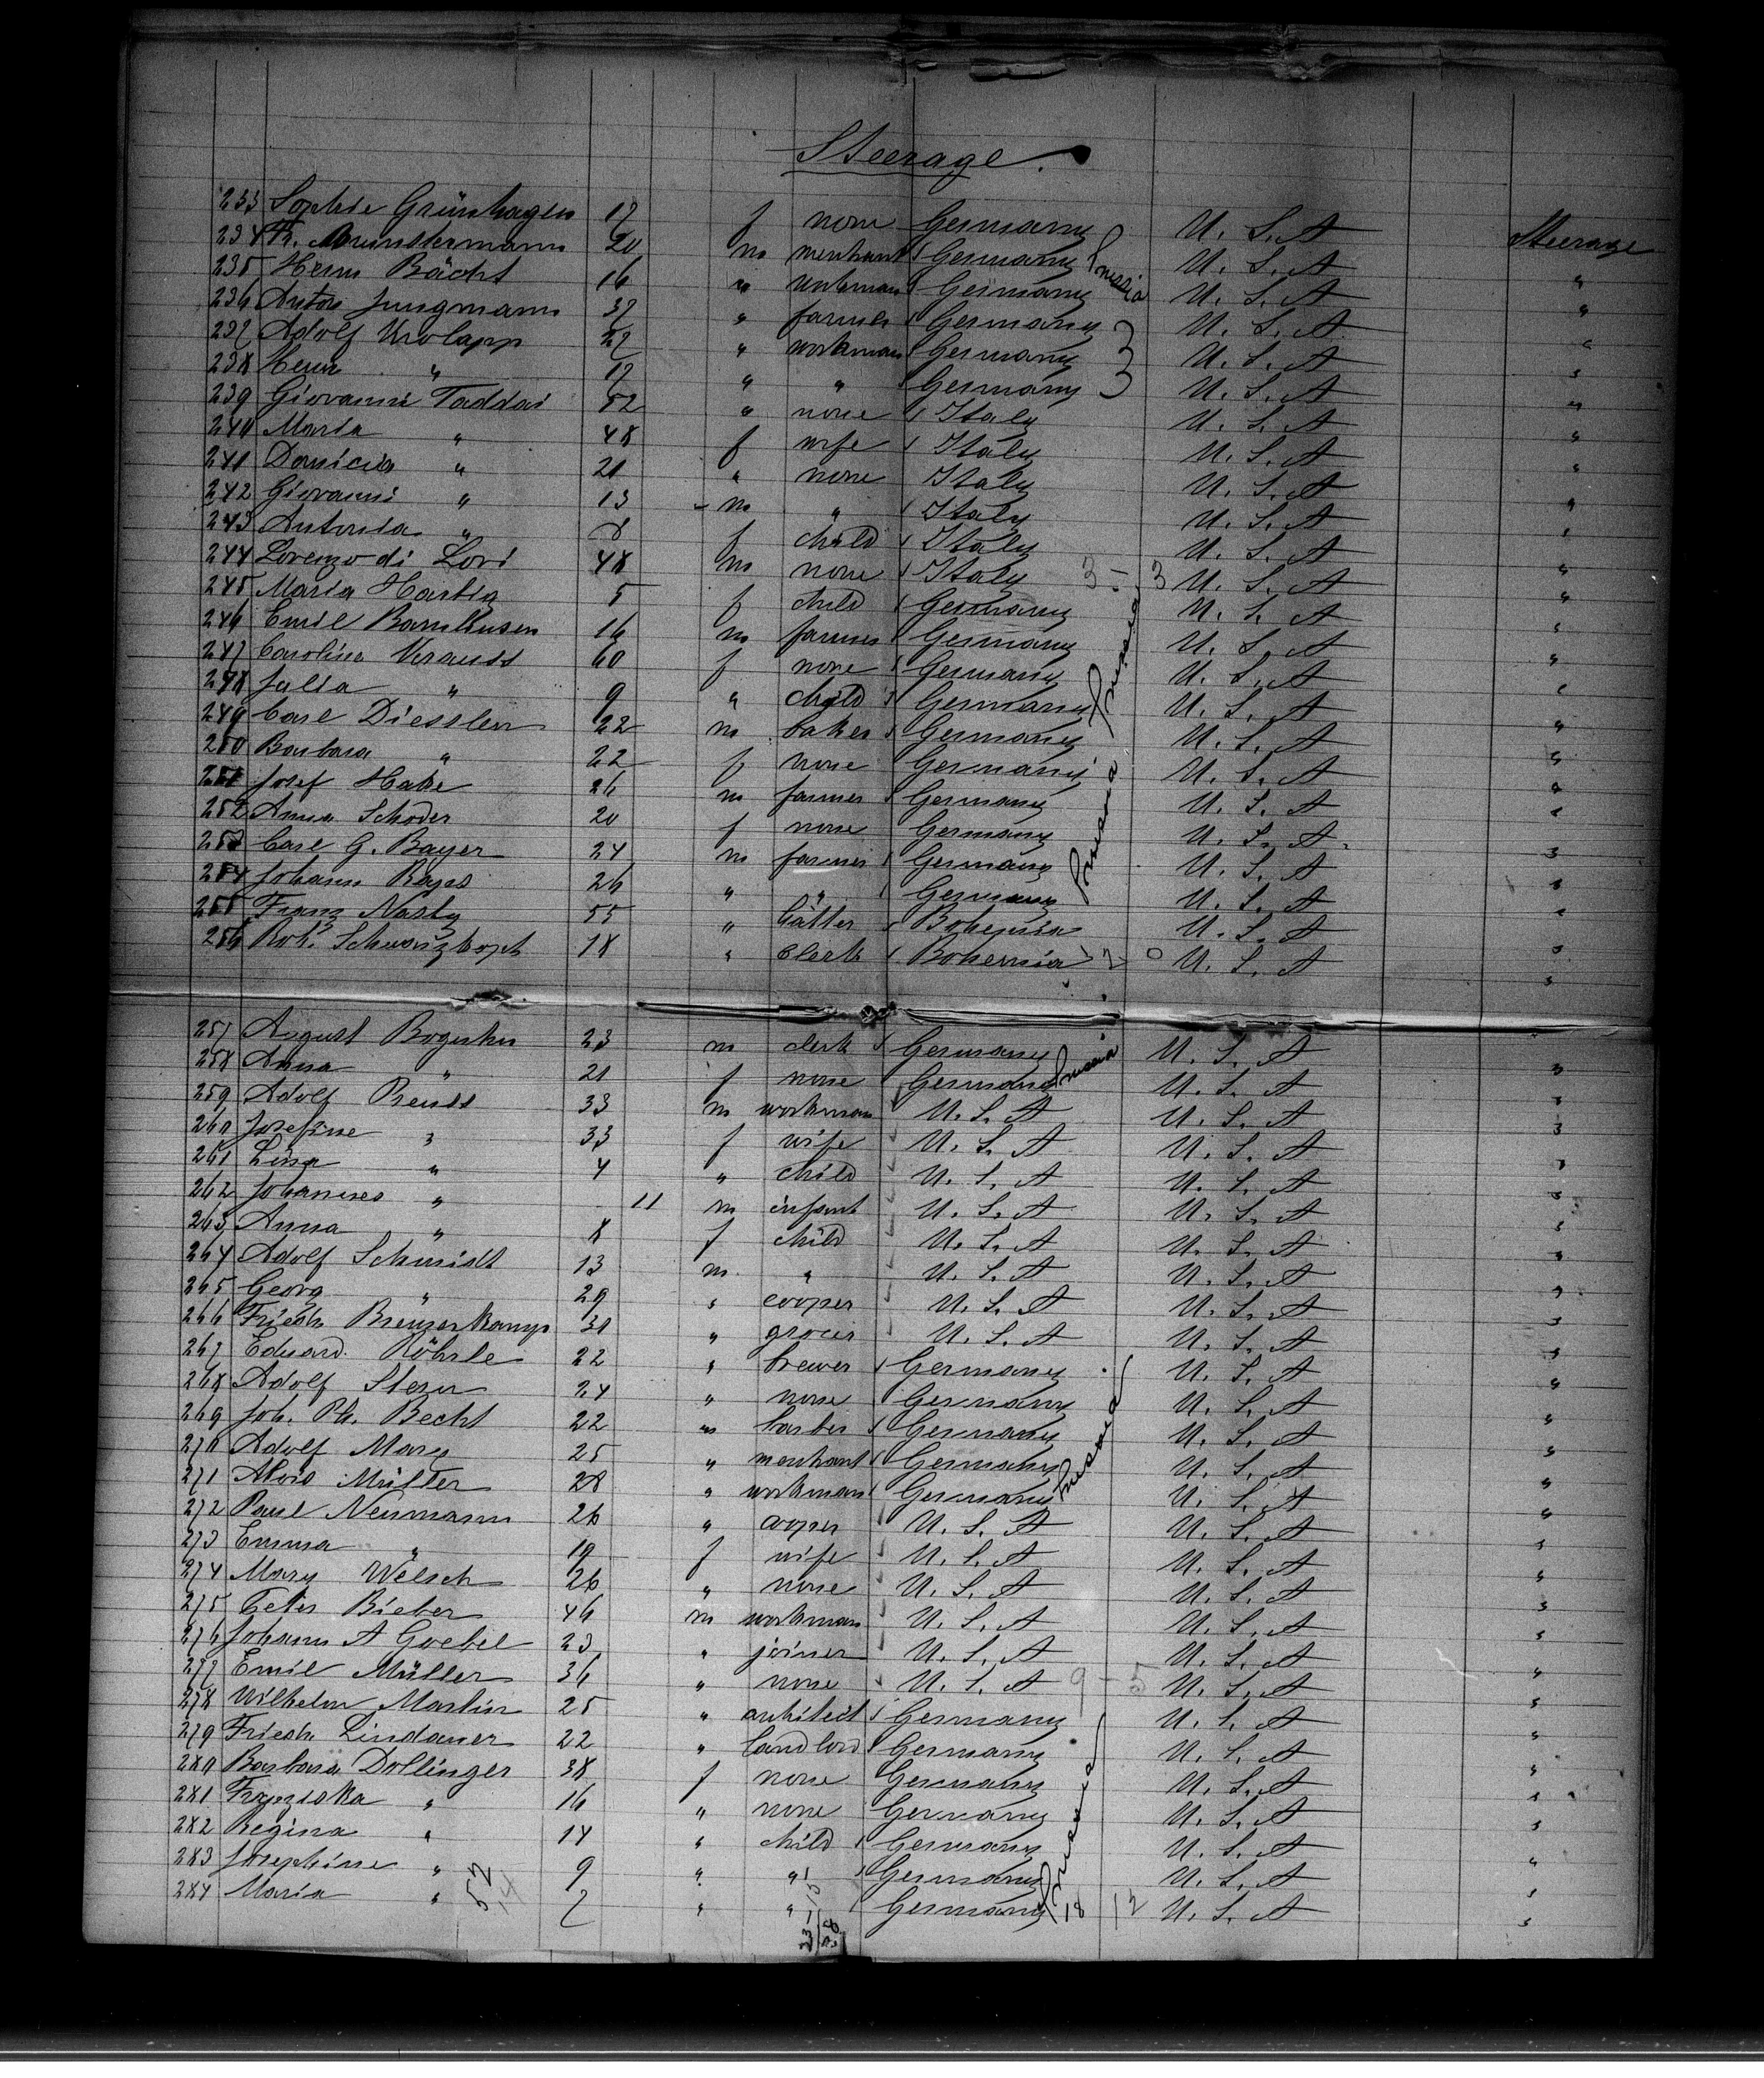 Steerage.
233 Sophie Grünhagen 17 f none Germany U. S. A Steerage
234 Münstermann 20 m merchant Germany U. S. A "
235 Herm Bächt 16 " workman Germany U. S. A "
236 Anton Jungmann 37 " farmer Germany U. S. A "
237 Adolf Krolapp 27 " workman Germany U. S. A "
238 Herm " 17 " " Germany U. S. A "
239 Giovanni Taddai 52 " none Italy U. S. A "
240 Maria " 48 f wife Italy U. S. A "
241 " 21 " none Italy U. S. A "
242 Giovanni " 13 m " Italy U. S. A "
243 Antonia " 8 f child Italy U. S. A "
244 Lorenzo di Lori 48 m none Italy 3 - 3 U. S. A "
245 Maria Hartig 5 f child Germany U. S. A "
246 Emil 16 m farmer Germany U. S. A "
247 Carolina Krauss 60 f none Germany U. S. A "
248 Julia " 9 " child Germany U. S. A "
249 Carl Diessler 22 m baker Germany U. S. A "
250 Barbara " 22 f none Germany U. S. A "
251 Josef Hake 26 m farmer Germany U. S. A "
252 Anna Schoder 20 f none Germany U. S. A. "
253 Carl G. Bayer 24 m farmer Germany U. S. A "
254 Johann 26 " " Germany U. S. A "
255 Franz Nasly 55 " Bohemia U. S. A "
256 Rob. Schwarzkopf 18 " Clerk Bohemia 12 0 U. S. A "
257 August 23 m clerk Germany U. S. A "
258 Anna " 21 f none Germany U. S. A "
259 Adolf Reuss 33 m workman U. S. A U. S. A "
260 Josefine " 33 f wife U. S. A U. S. A "
261 Lina " 4 " child U. S. A U. S. A "
262 Johannes " 11 m infant U. S. A U. S. A "
263 Anna " 8 f child U. S. A U. S. A "
264 Adolf Schmidt 13 m " U. S. A U. S. A "
265 Georg " 29 " cooper U. S. A U. S. A "
266 Friedr. 31 " grocer U. S. A U. S. A "
267 Eduard Röhrle 22 " brewer Germany U. S. A "
268 Adolf Stern 24 " none Germany U. S. A "
269 Joh. Ph. Becht 22 " barber Germany U. S. A "
270 Adolf Marx 25 " merchant Germany U. S. A "
271 Alois Müller 28 " workman Germany U. S. A "
272 Paul Neumann 26 " cooper U. S. A U. S. A "
273 Emma " 19 f wife U. S. A U. S. A "
274 Mary Welsch 26 " none U. S. A U. S. A "
275 Peter Bieber 46 m workman U. S. A U. S. A "
276 Johann A Goebel 23 " joiner U. S. A U. S. A "
277 Emil Müller 36 " none U. S. A 9 - 5 U. S. A "
278 Wilhelm Martin 25 " architect Germany U. S. A "
279 Friedr. Lindauer 22 " landlord Germany U. S. A "
280 Barbara Dollinger 38 f none Germany U. S. A "
281 Franziska " 16 " none Germany U. S. A "
282 Regina " 14 " child Germany U. S. A "
283 Josephine " 9 " " Germany U. S. A "
284 Maria " 7 " " Germany 18 12 U. S. A "
Prussia
Prussia
Prussia
Prussia
Prussia
52
14
23-15
38